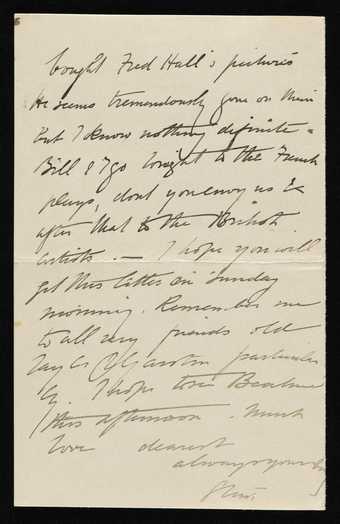 bought Fred Hall's pictures
He seems tremendously gone on them
but I know nothing definite -
Bill & I go tonight to the French
plays, dont you envy us &
after that to the British
artists. — I hope you will
get this letter on Sunday
morning. Remember me
to all my friends old
Taylor & Garstin particular
ly. I hope to see Beatrice
this afternoon. Much
love dearest
always yours